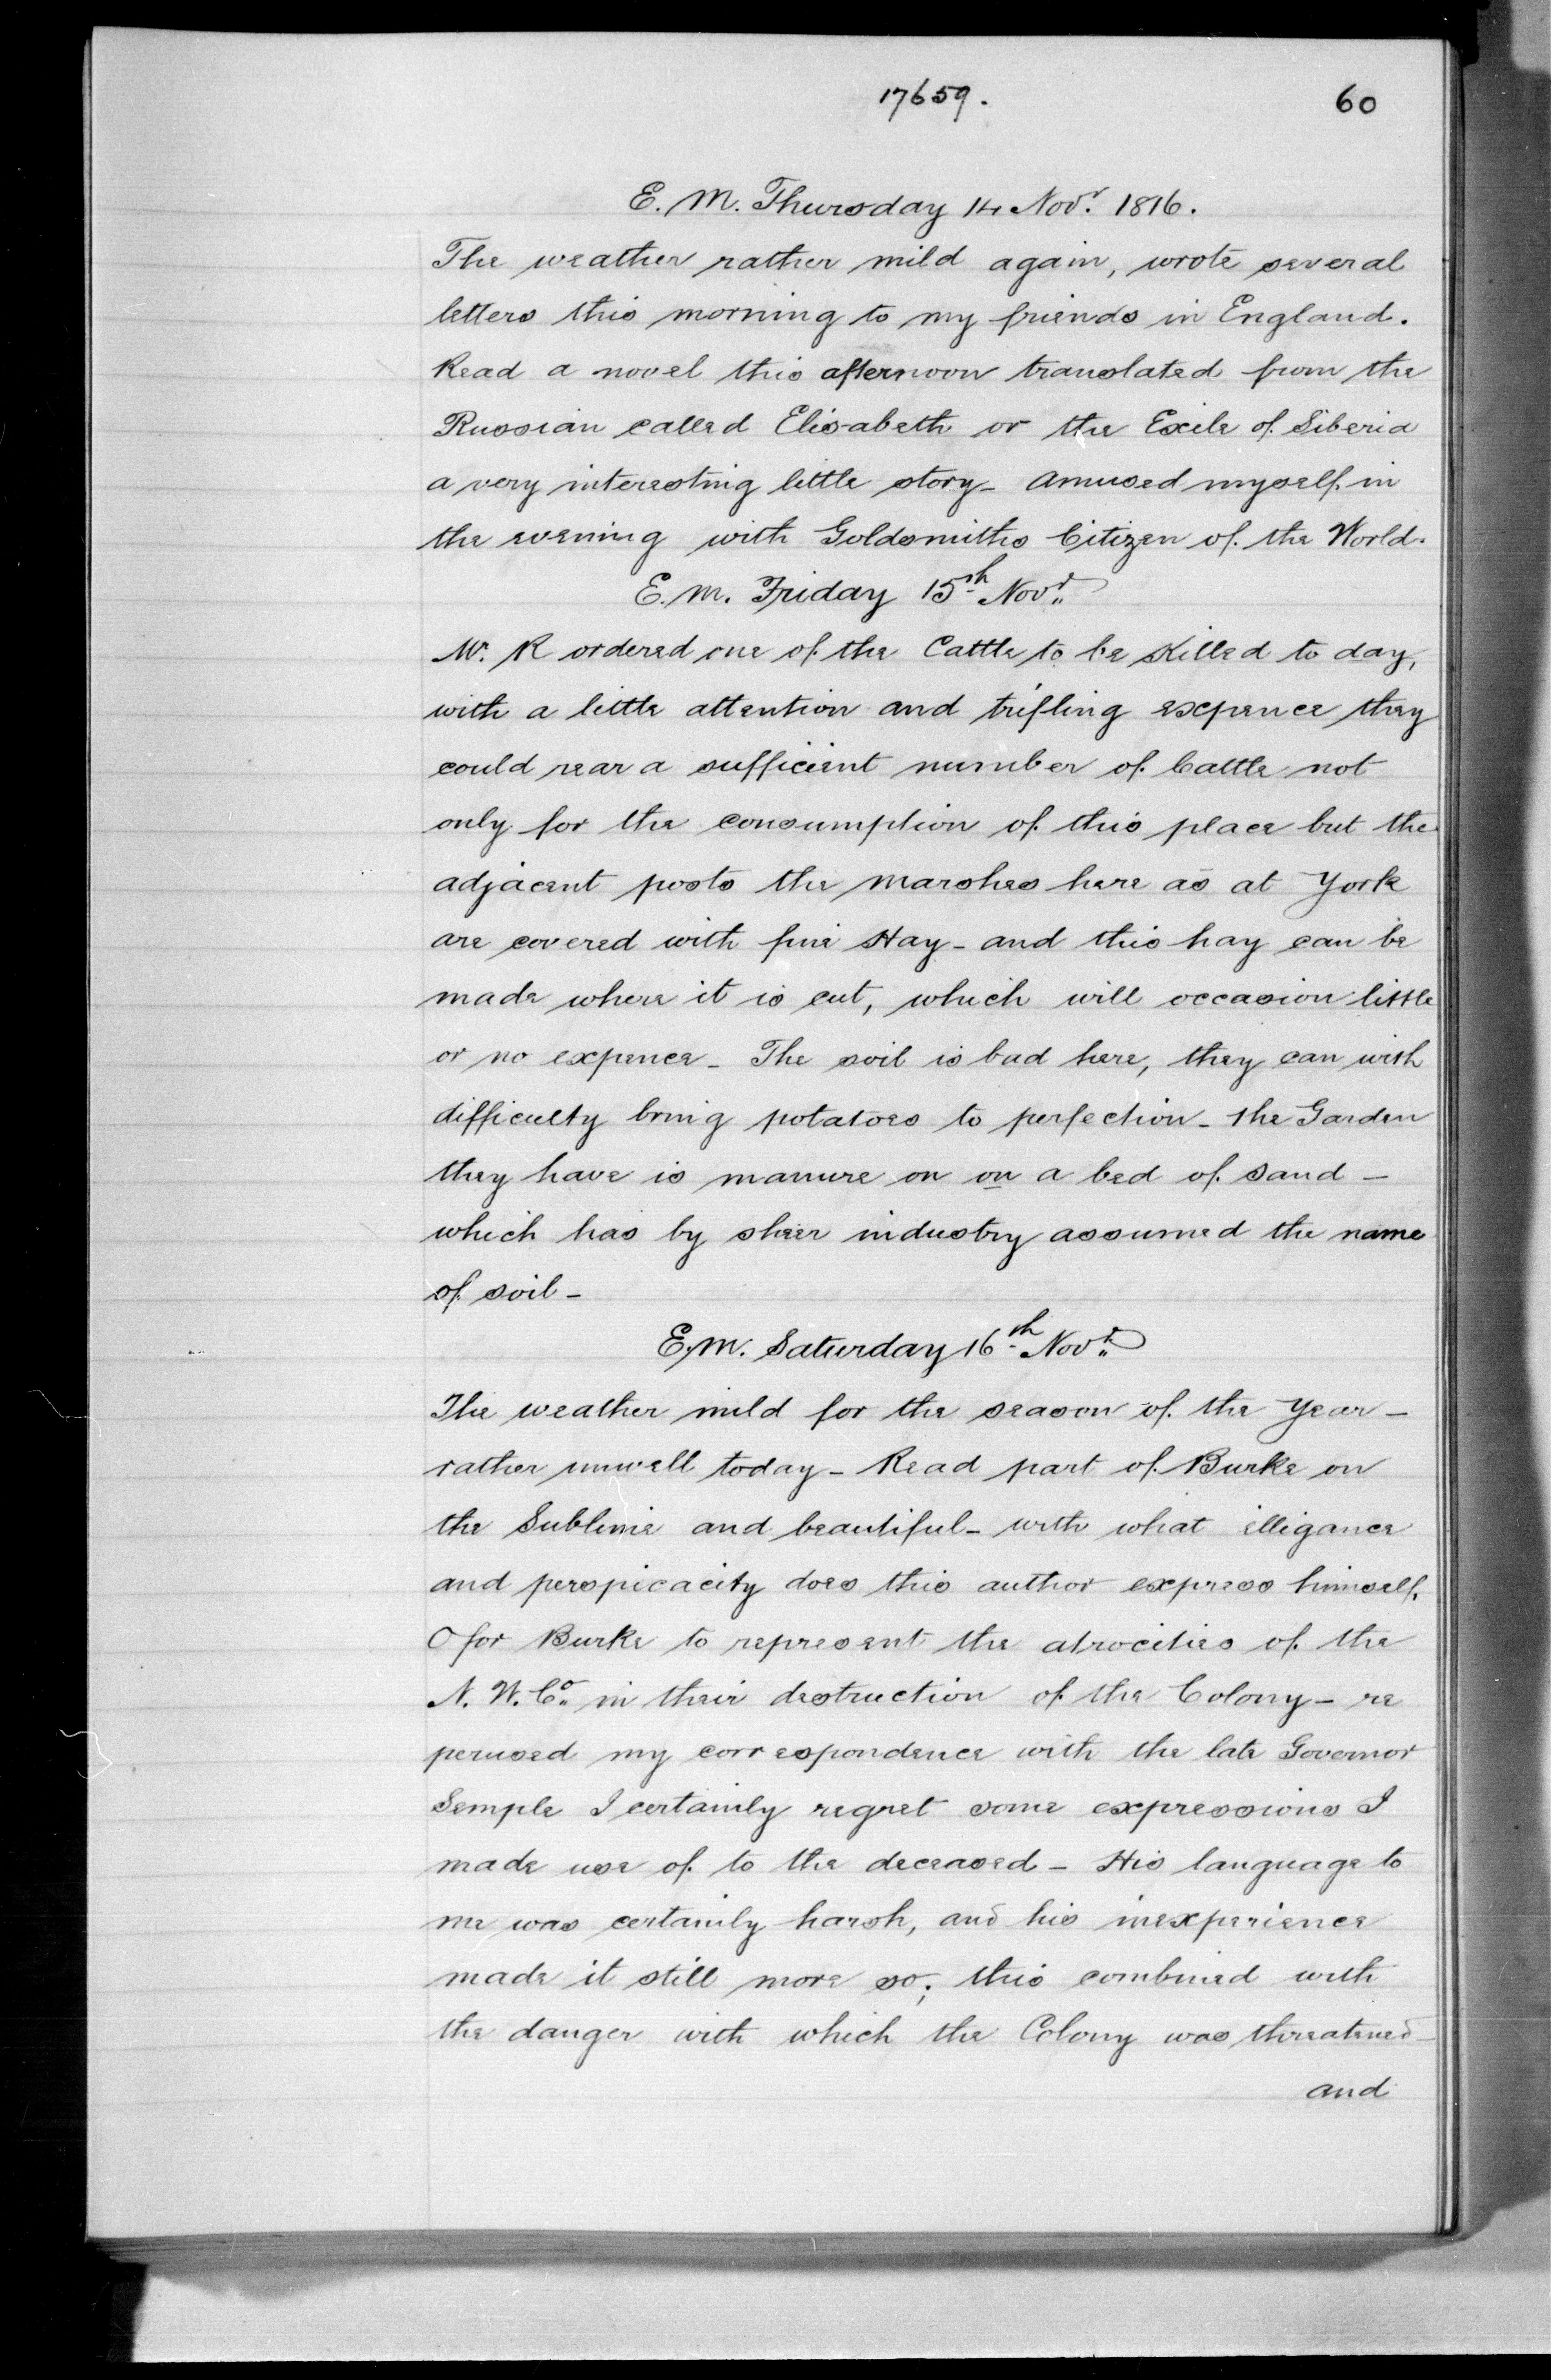 17659.
60
E. M. Thursday 14 Novr. 1816.
The weather rather mild again, wrote several
letters this morning to my friends in England.
Read a novel this afternoon translated from the
Russian called Elisabeth or the Exile of Siberia
a very interesting little story - amused myself in
the evening with Goldsmiths Citizen of the World.
E. M. Friday 15th Novr.
Mr. R ordered one of the Cattle to be Killed to day,
with a little attention and trifling expence they
could rear a sufficient number of Cattle not
only for the consumption of this place but the
adjacent posts the marshes here as at York
are covered with fine Hay - and this hay can be
made where it is cut, which will occasion little
or no expence - The soil is bad here, they can with
difficulty bring potatoes to perfection - the Garden
they have is manure on on a bed of sand -
which has by sheer industry assumed the name
of soil -
E. M. Saturday 16th Novr.
The weather mild for the season of the Year -
rather unwell today - Read part of Burke on
the Sublime and beautiful - with what elligance
and perspicacity does this author express himself.
O for Burke to represent the atrocities of the
N. W. Co. in their destruction of the Colony - re
perused my correspondence with the late Governor
Semple I certainly regret some expressions I
made use of to the deceased - His language to
me was certainly harsh, and his inexperience
made it still more so; this combined with
the danger with which the Colony was threatened
and